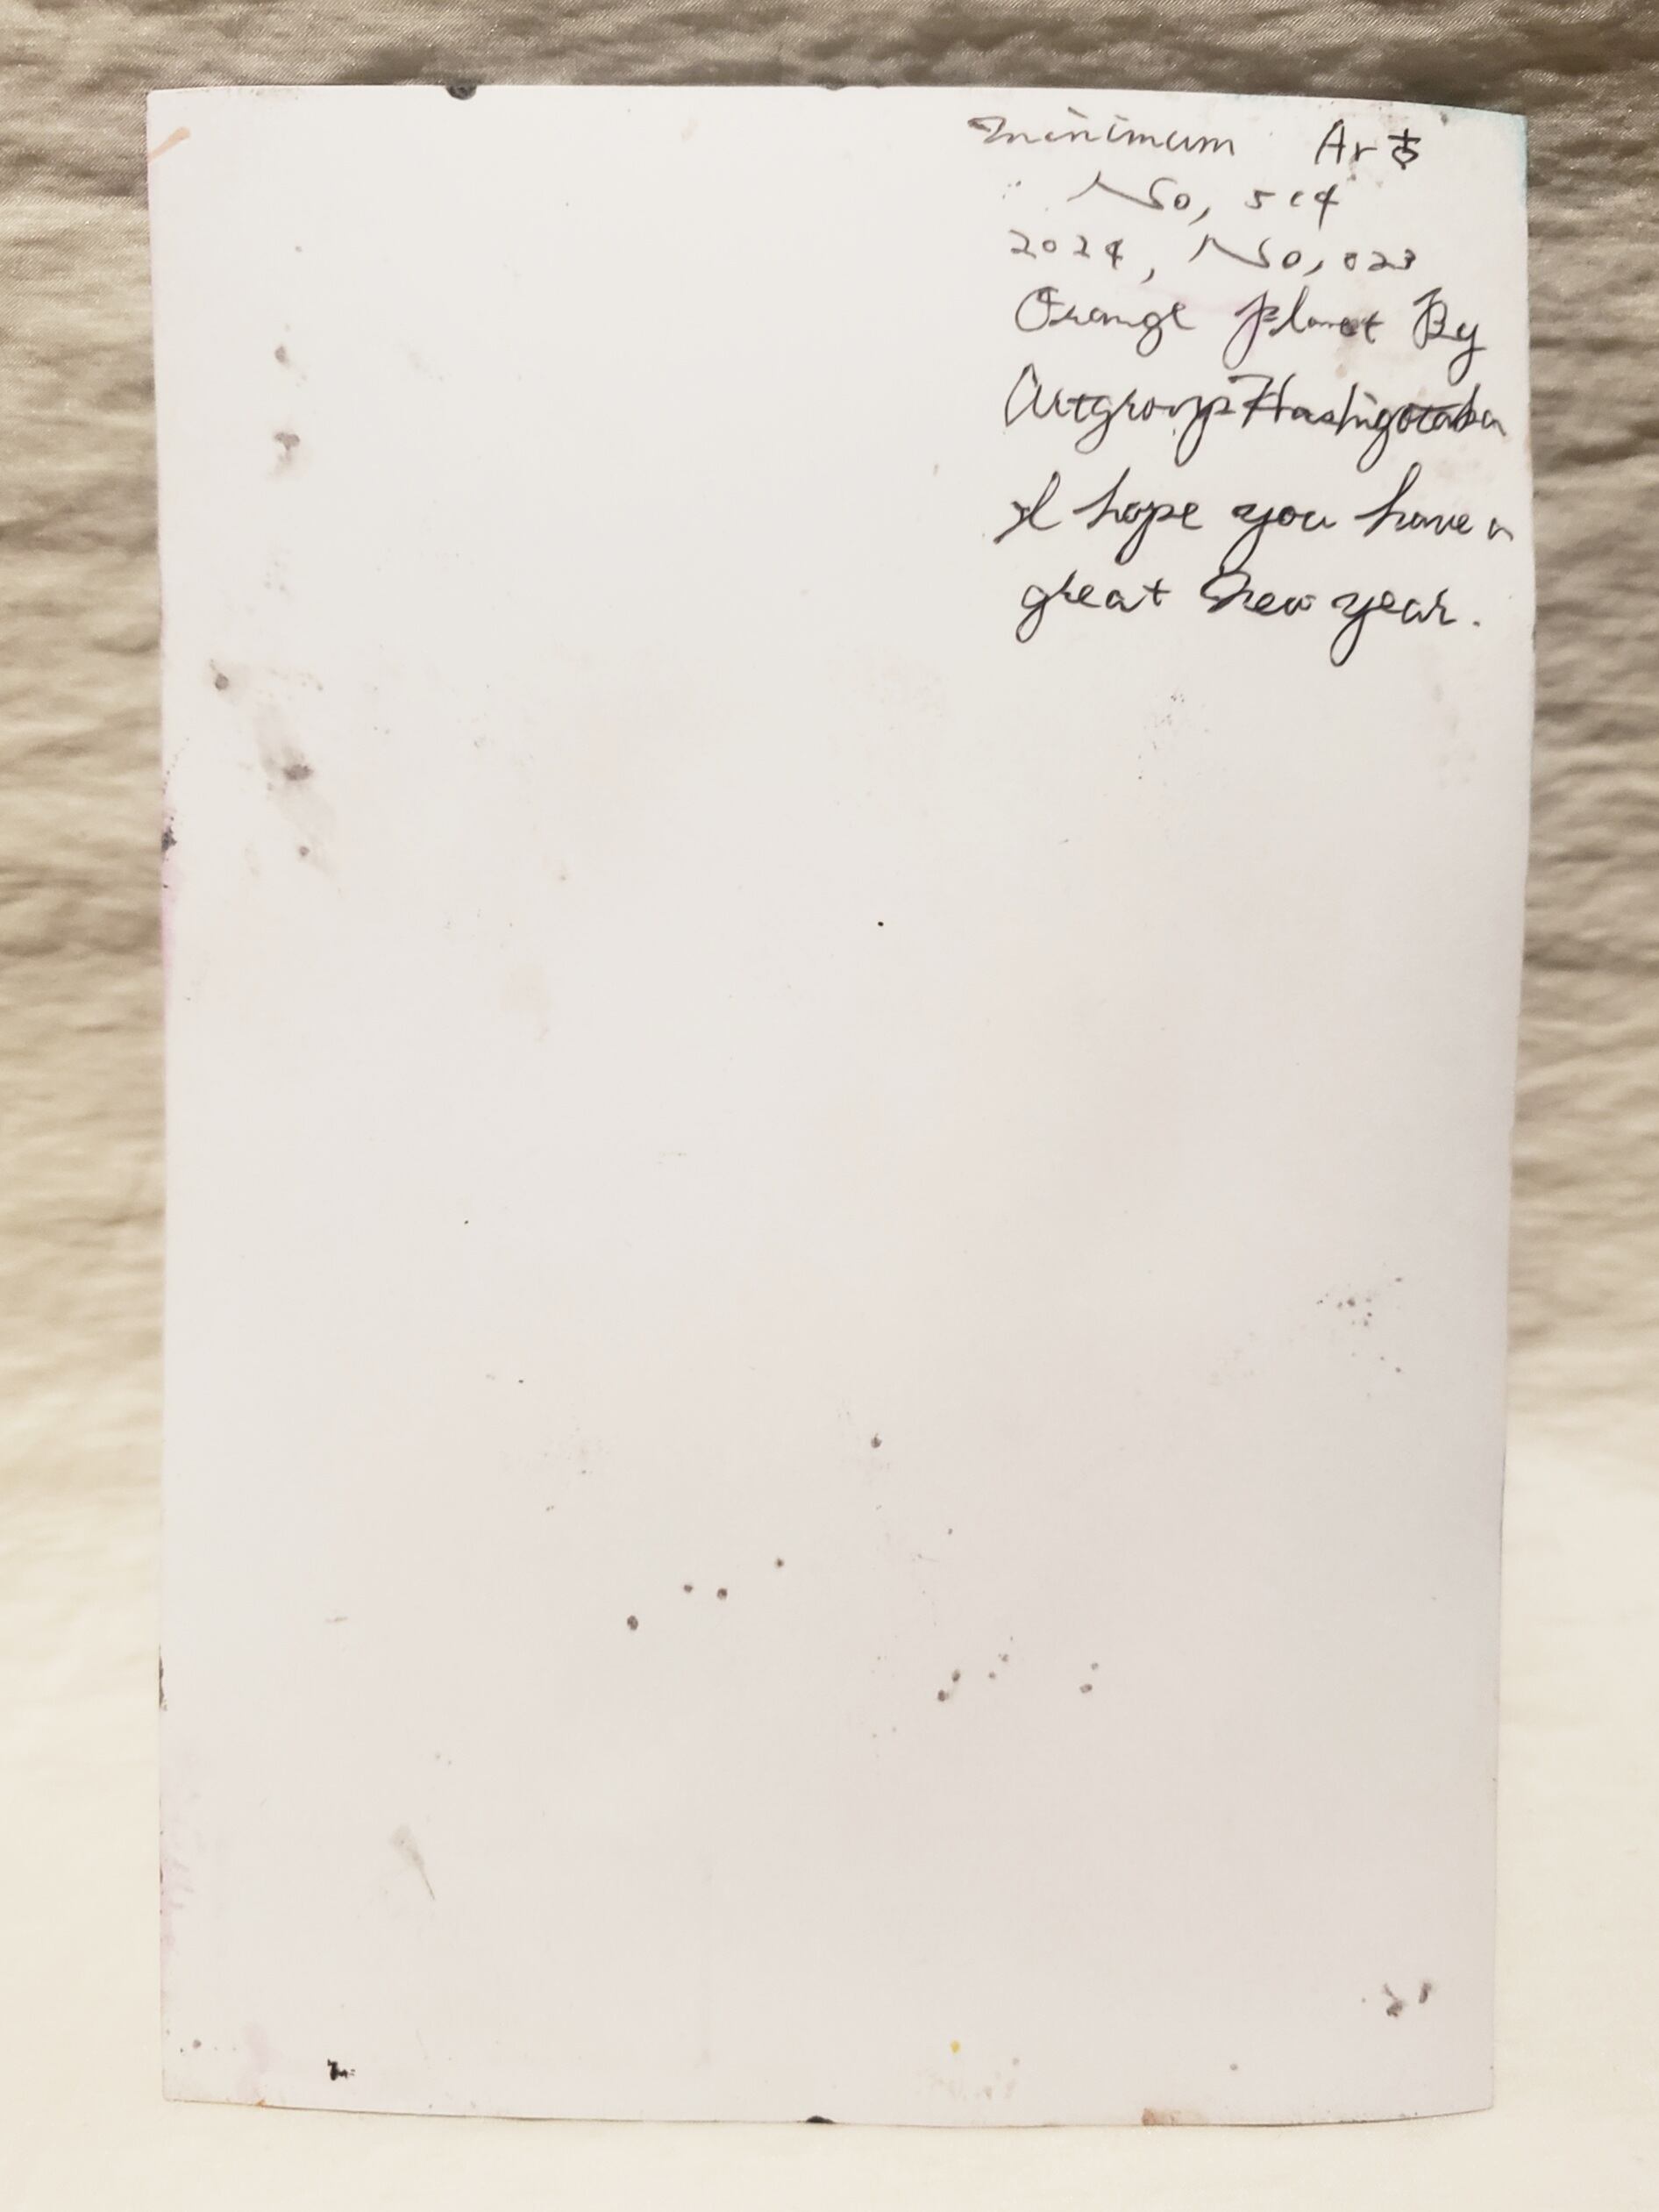 minimum Art
No, 514
2024, No, 023
Orange Planet By
Artgroup Hashigotaka
I hope you have a
great New year.